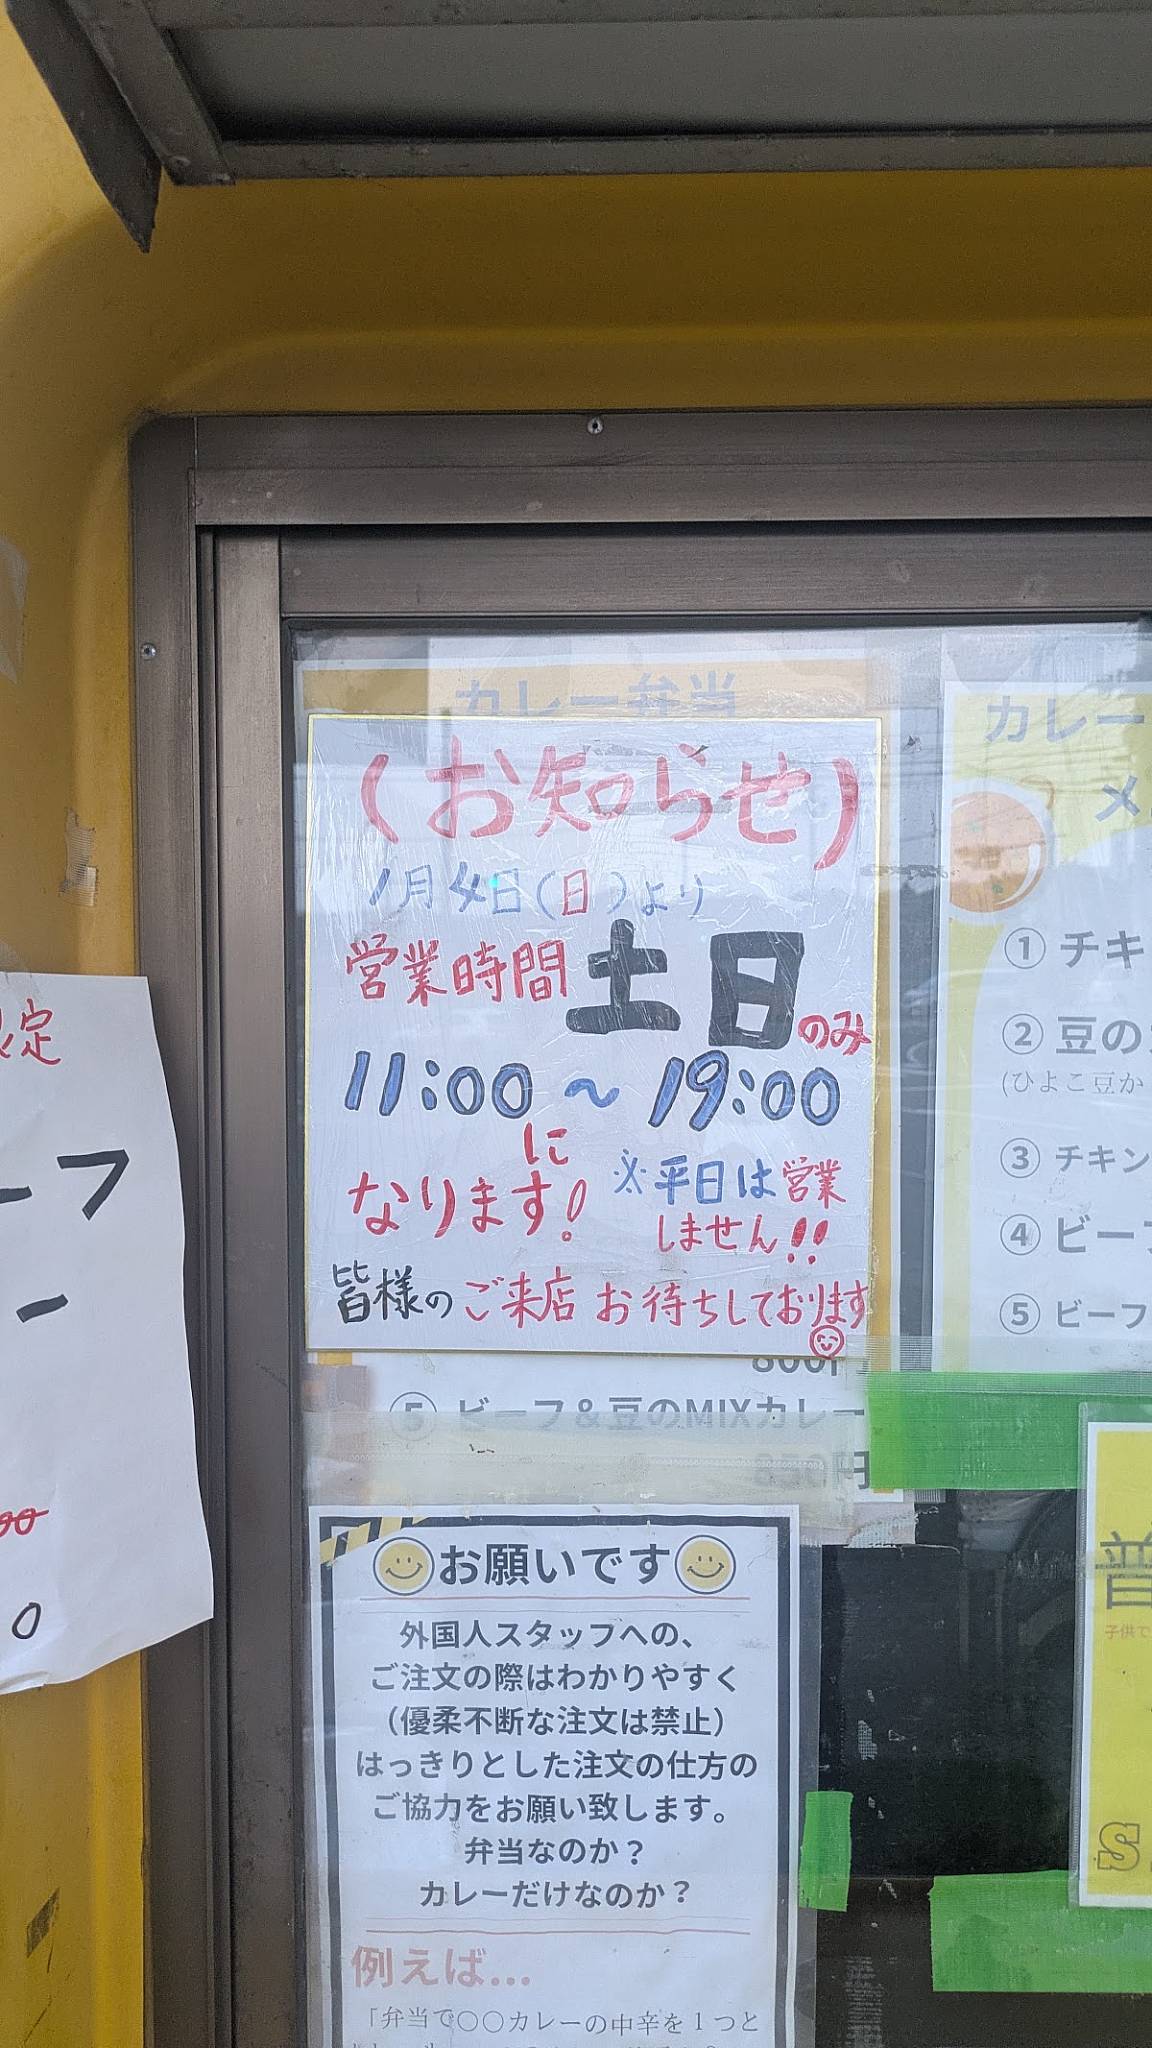 カレー弁当
(お知らせ)
1月4日(日)より
営業時間 土日のみ
11:00~19:00
に
なります!
※平日は営業
しません!!
皆様のご来店お待ちしております
⑤ ビーフ&豆のMIXカレー
850円
お願いです
外国人スタッフへの、
ご注文の際はわかりやすく
(優柔不断な注文は禁止)
はっきりとした注文の仕方の
ご協力をお願い致します。
弁当なのか?
カレーだけなのか?
例えば...
「弁当で〇〇カレーの中辛を1つと
カレー
① チキ
② 豆の
(ひよこ豆か
③ チキン
④ ビーフ
⑤ ビーフ
普
子供で
S
定
ーフ
ー
0